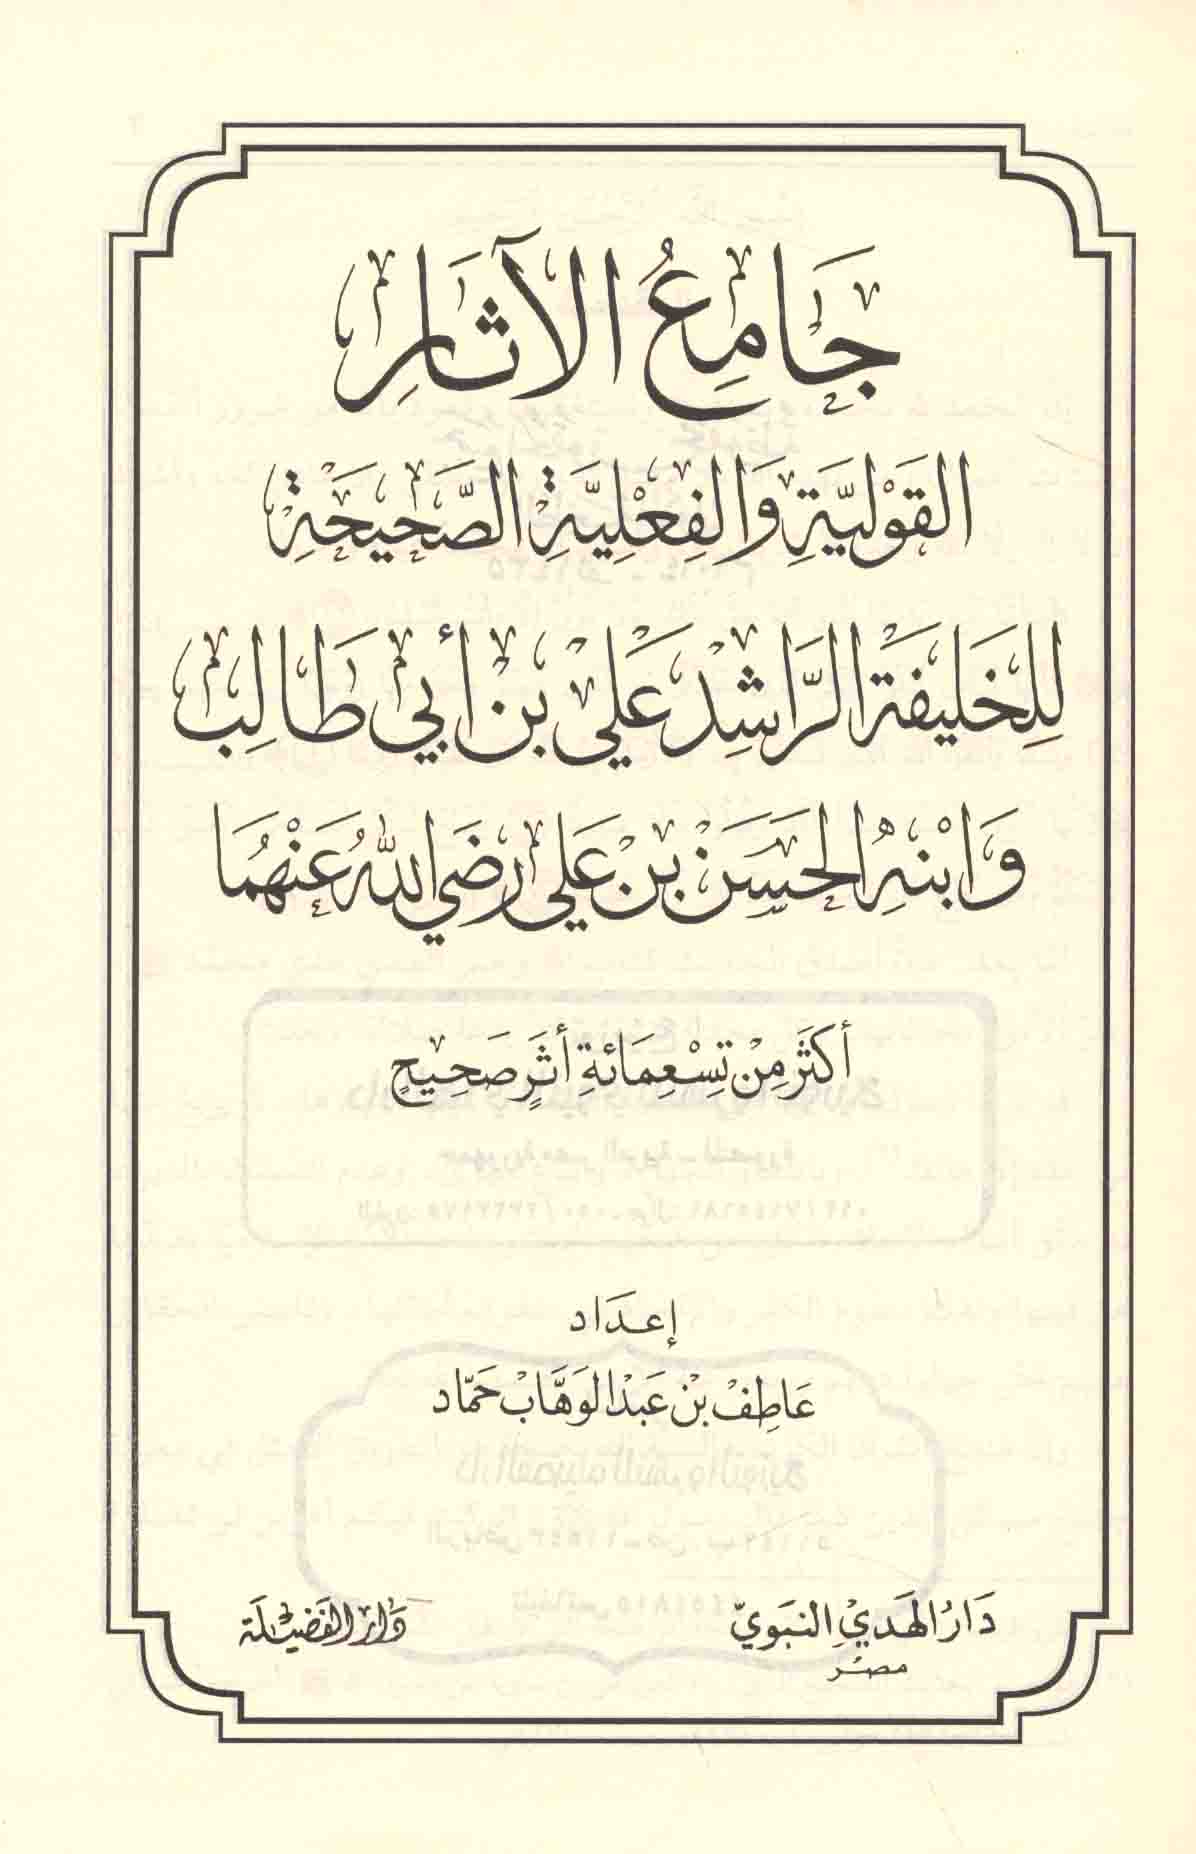 جَامِعُ الآثَارِ
القَوْلِيَّةِ وَالفِعْلِيَّةِ الصَّحِيحَةِ
لِلخَلِيفَةِ الرَّاشِدِ عَلِي بن أبي طَالِب
وَابْنِهِ الحَسَن بن عَلي رَضِي اللهُ عَنْهُمَا
أكثَر مِن تِسْعِمَائةِ أثَرٍ صَحِيحٍ
إعدَاد
عَاطِف بن عَبد الوَهَّاب حَمَّاد
دَارُ الهَديِ النبَويّ
مصر
دَار الفَضيلَة